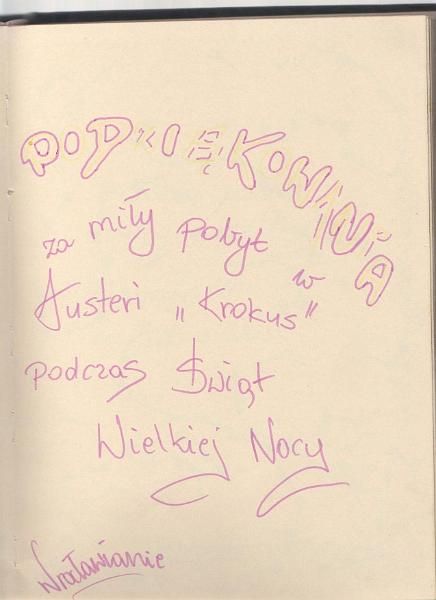 PODZIĘKOWANIA
za miły pobyt w
Austeri „Krokus"
podczas Świąt
Wielkiej Nocy
Wrocławianie